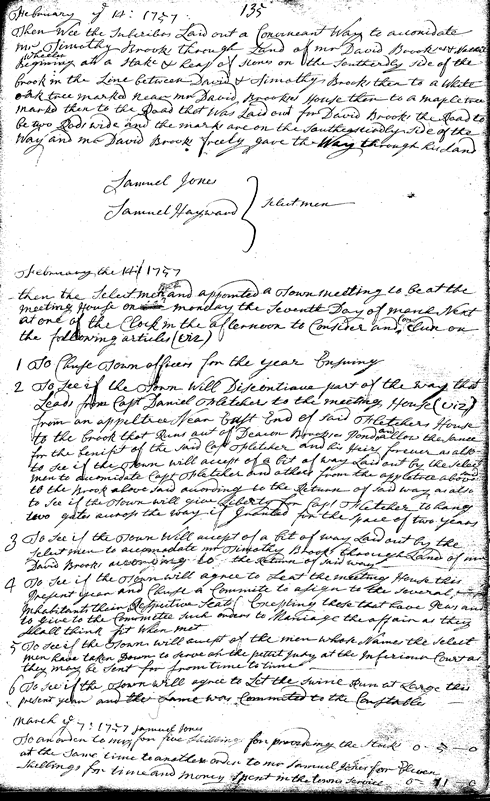 135
February ye 14: 1757
Then Wee the Subscribers Laid out a Convineant Way to accomidate
mr Timothy Brook through Land of mr David Brook
Wheeler
Begining att a Stake & heap of stones on the Southerly side of the
brook in the Line between David & Timothy Brooks then to a White
oak tree marked near mr David Brooks House then to a mapletree
marked then to the Road that Was Laid out for David Brook the Road to
be two Rods wide and the mark are on the Southeasterdly side of the
Way and mr David Brook freely gave the Way through his Land
Samuel Jones
Samuel Hayward
Select men
February the 14 1757
then the Select men met and appointed a Town meeting to be at the
meeting House on monday the Seventh Day of march Next
at one of the Clock in the afternoon to Consider and
the following articles (viz)
1 To Chuse Town officers for the year Ensuing
2 To See if the Town Will Discontinue part of the way that
Leads from Capt Daniel Fletcher to the meeting House (viz)
from an appeltree Near East End of said Fletchers House
to the brook that Runs out of Deacon Brookses Pond
for the benifit of the Said Capt Fletcher and his heirs forever as also
to see if the Town will accept of a bit of way Laid out by the Select
men to accomidate Capt Fletcher and others from the appletree abovesd
to the Brook above said according to the Return of said way as also
to See if the Town will give Liberty for Capt Fletcher to hang
two gates across the way if granted for the space of two years
3 To See if the Town Will Accept of a bit of way Laid out by the
Select men to accomodate mr Timothy Brook through Land of mr
David Brook according to the Return of said way
4 To See if the Town will agree to Seat the meeting House this
Present year and Chuse a Commite to asign to the Several
Inhabitants their Respective Seats Excepting those that have Pews and
to give to the Committe such orders to Manage the affair as they
shall think fit when met
5 To See if the Town will accept of the men whose Names the Select
men have taken Down to serve on the petit Jury at the Inferiour Court as
they may be Sent for from time to time
6 To See if the Town will agree to Let the Swine Run at Large this
present year and the Same was Committed to the Constables
March ye 7: 1757 Samuel Jones
To an order to mr for five shillings for providing the Stock 0 - 5 - 0
at the Same time to another order to mr Samuel Jones for Eleven
Shillings for time and money Spent in the towns Service 0 - 11 - 0